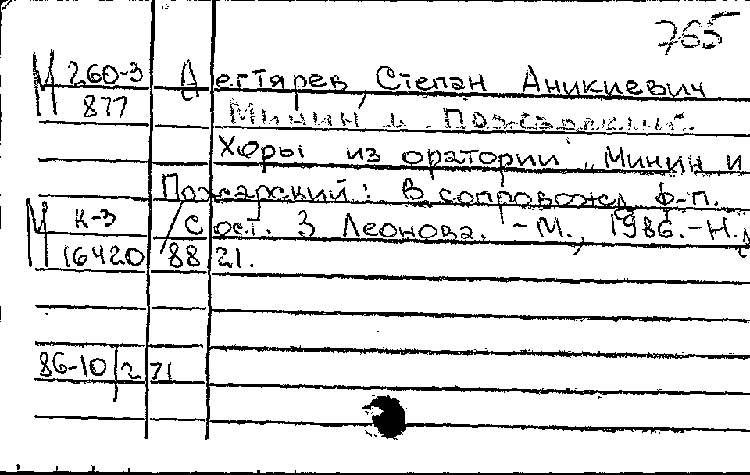 765
М 260-3 Дегтярев, Степан Аникиевич
877 Минин и Пожарский.
Хоры из оратории „Минин и
Пожарский: В сопровожд. ф-п.
М К-3 / Сост. З Леонова. - М., 1986. - Н.д
16420/88 21.
86-10/2 71